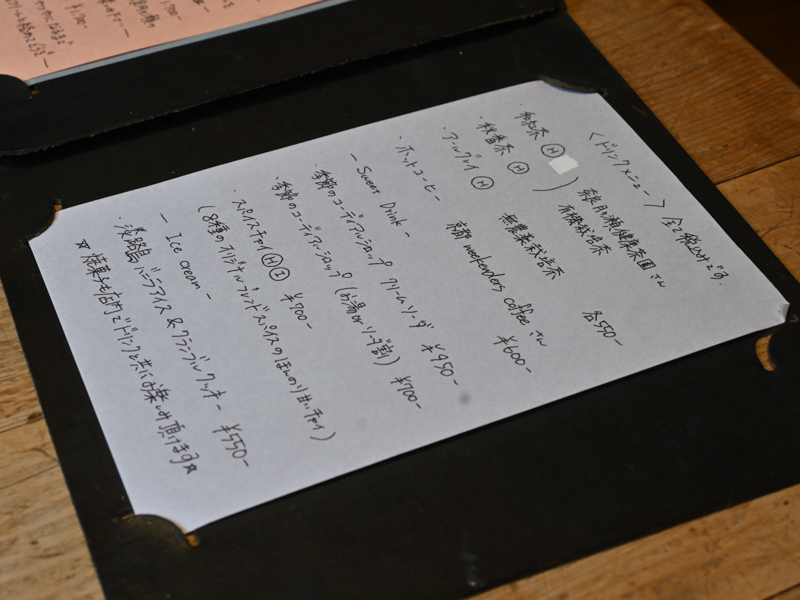 〈ドリンクメニュー〉 全て税込みです.
・和紅茶 Ⓗ 奈良 月ヶ瀬健康茶園さん
・秋番茶 Ⓗ 有機栽培茶
・アールグレイ Ⓗ 無農薬栽培茶 各550-
・ホットコーヒー 京都 weekenders coffeeさん ¥600-
- Sweet Drink -
・季節のコーディアルシロップ クリームソーダ ¥950-
・季節のコーディアルシロップ (お湯orソーダ割) ¥700-
・スパイスチャイ ⒽⒾ ¥700-
(8種のオリジナルブレンドスパイスのほんのり甘いチャイ)
- Ice cream -
・淡路島バニラアイス & クランブルクッキー ¥550-
☆焼菓子も店内でドリンクと共にお楽しみ頂けます☆